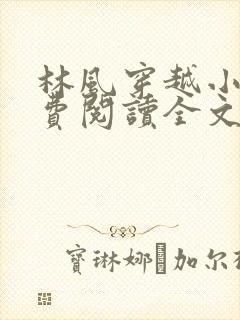 林風穿越小
費閱讀全文
寶琳娜 加尔